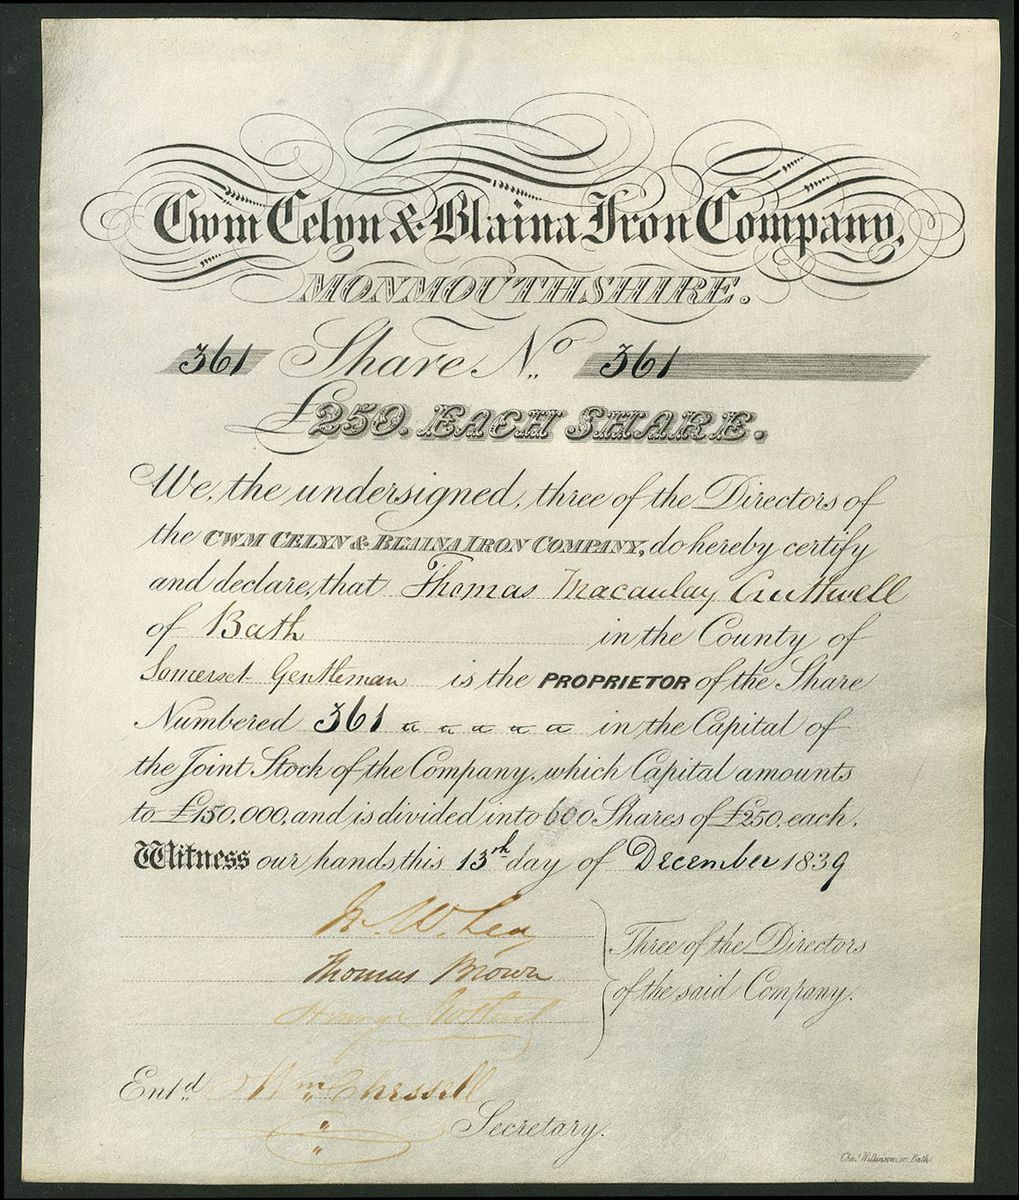 Cwm Celyn & Blaina Iron Company,
MONMOUTHSHIRE.
361 Share No. 361
£250. EACH SHARE.
We, the undersigned, three of the Directors of
the CWM CELYN & BLAINA IRON COMPANY, do hereby certify
and declare, that Thomas Macaulay Cruttwell
of Bath in the County of
Somerset Gentleman is the PROPRIETOR of the Share
Numbered 361 in the Capital of
the Joint Stock of the Company, which Capital amounts
to £150,000, and is divided into 600 Shares of £250, each.
Witness our hands this 13th day of December 1839
W. Lea
Thomas Brown
Three of the Directors
of the said Company.
Entd. Wm Chessell
Secretary.
Chas. Wilkinson sc. Bath.